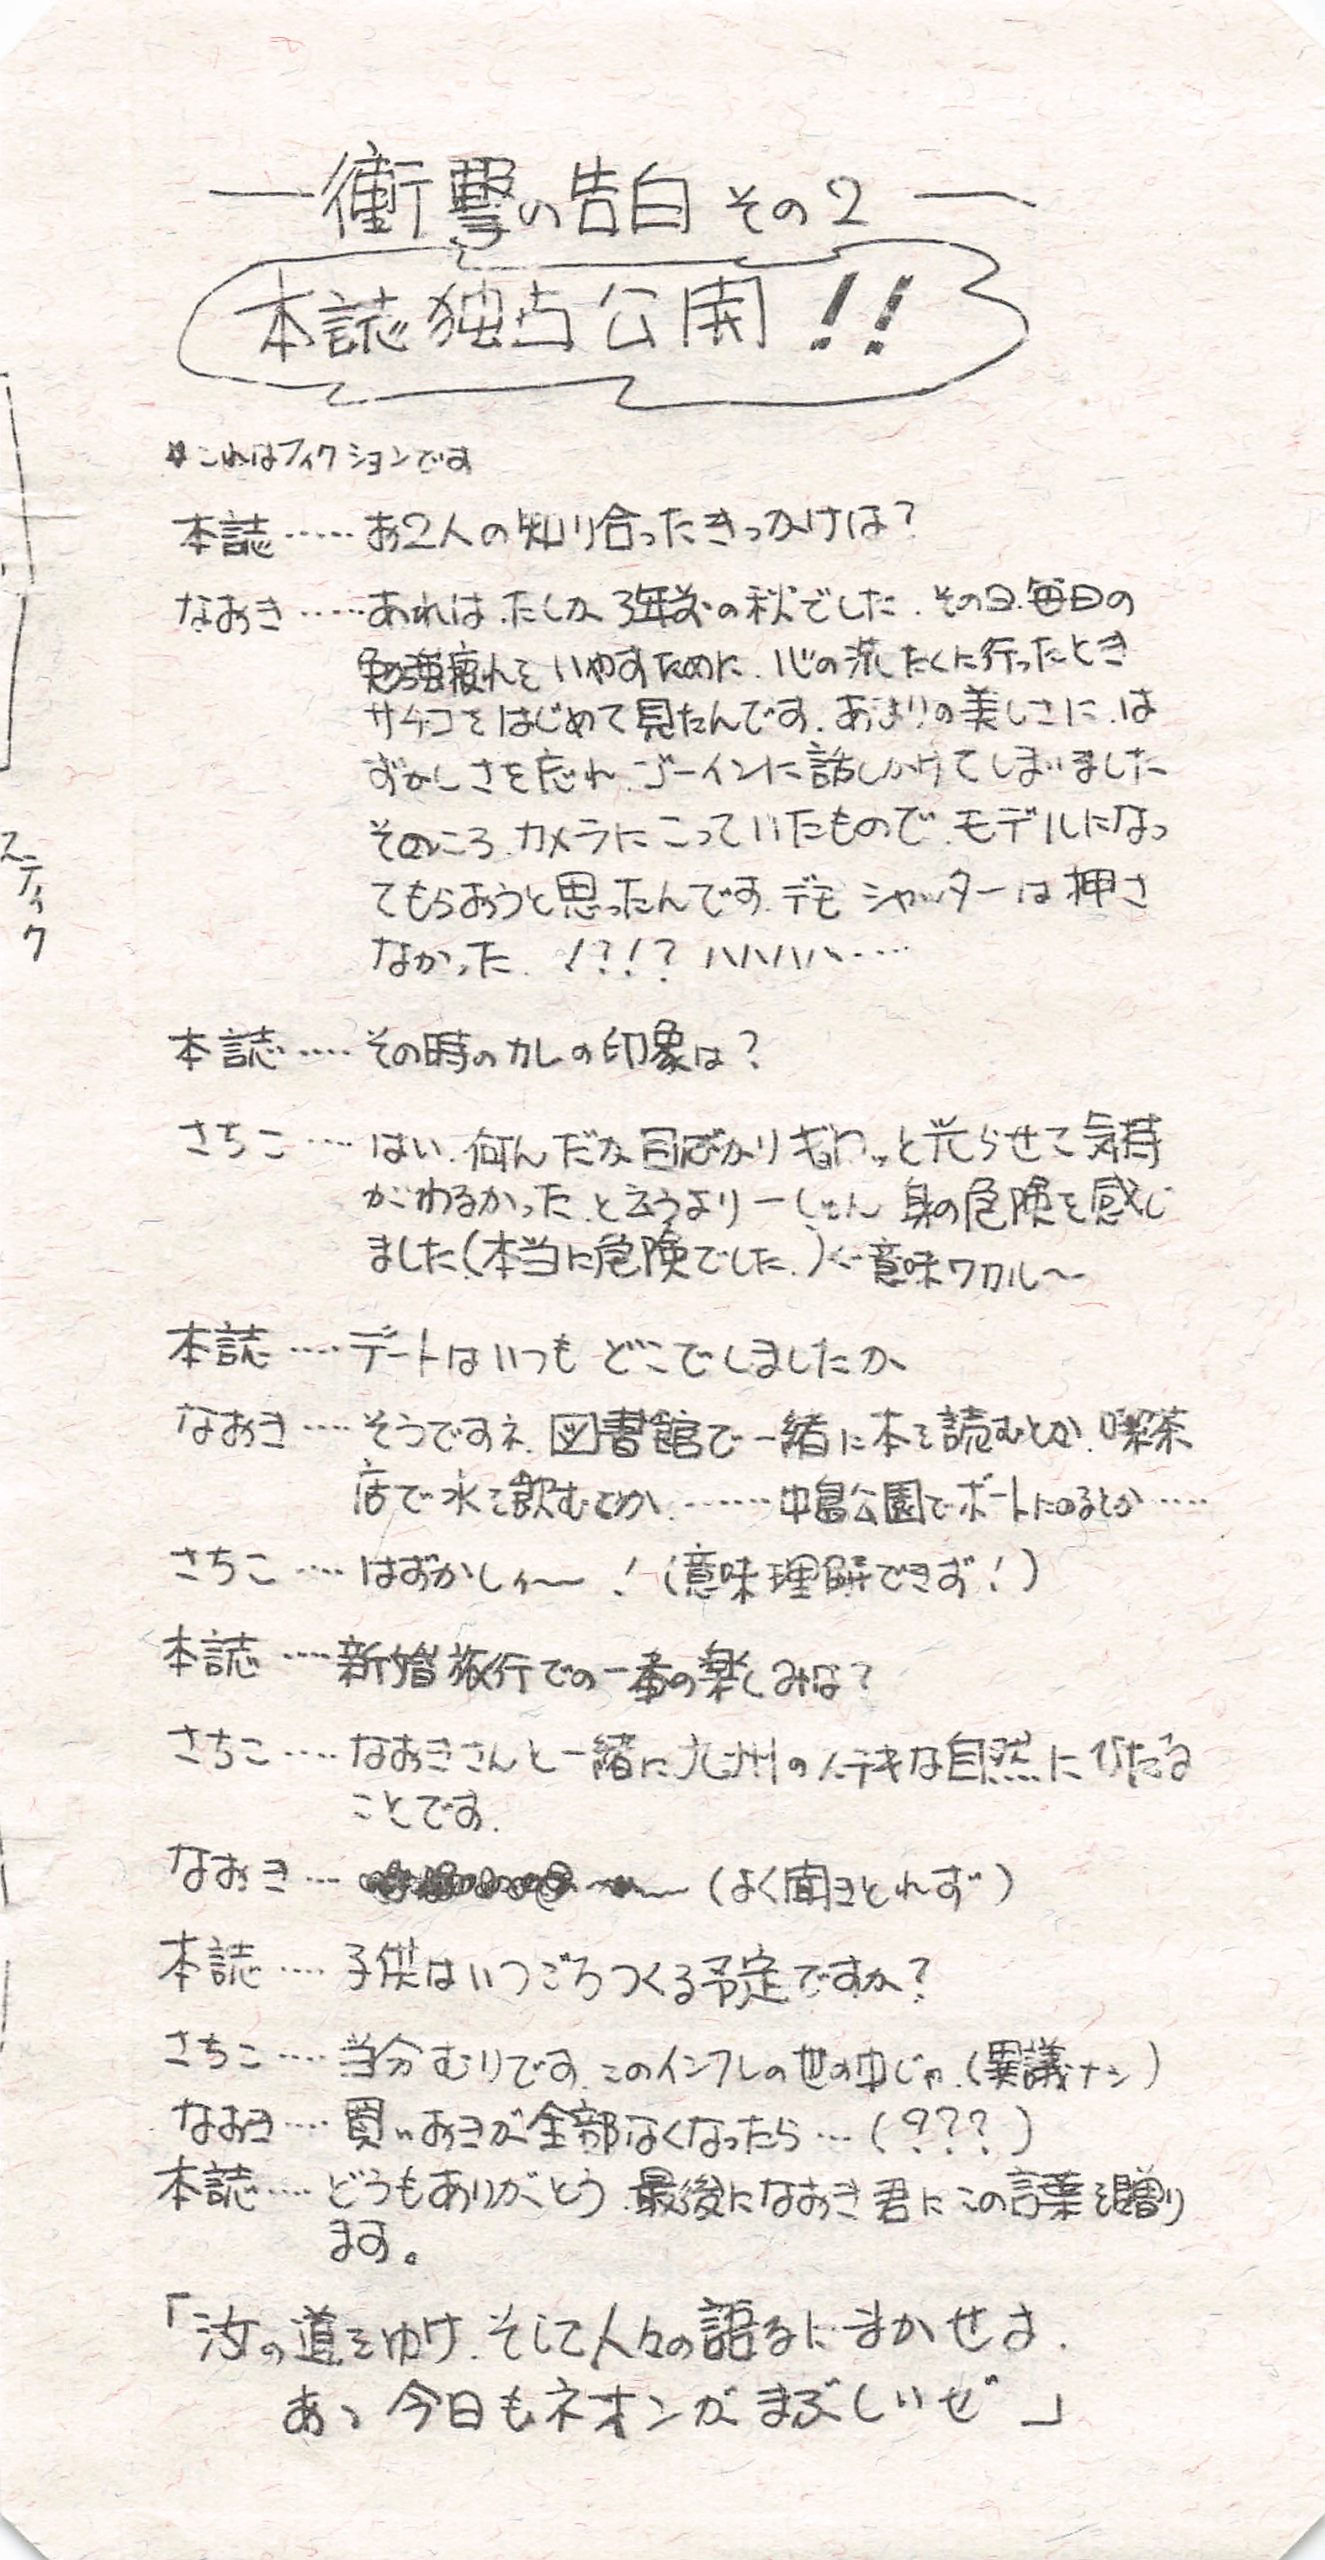 ― 衝撃の告白 その2 ―
本誌独占公開!!
これはフィクションです
本誌……お2人の知り合ったきっかけは?
なおき……あれは、たしか3年前の秋でした。その日、毎日の
勉強疲れをいやすために、心の洗たくに行ったとき
サチコをはじめて見たんです。あまりの美しさに、は
ずかしさを忘れ、ゴーインに話しかけてしまいました
そのころ、カメラにこっていたもので、モデルになっ
てもらおうと思ったんです。デモ シャッターは押さ
なかった。!?!? ハハハハ……
本誌……その時のカレの印象は?
さちこ……はい、何んだか目ばかりギョロッと光らせて気持
がわるかった、と云うより一しゅん 身の危険を感じ
ました。(本当に危険でした。)←意味ワカル〜
本誌……デートはいつも どこでしましたか
なおき……そうですネ、図書館で一緒に本を読むとか、喫茶
店で水を飲むとか、……中島公園でボートにのるとか……
さちこ……はずかしィ〜!(意味理解できず!)
本誌……新婚旅行での一番の楽しみは?
さちこ……なおきさんと一緒に九州のステキな自然にひたる
ことです。
なおき… (よく聞きとれず)
本誌……子供はいつごろつくる予定ですか?
さちこ……当分むりです。このインフレの世の中じゃ、(異議ナシ)
なおき……買いおきが全部なくなったら…(???)
本誌……どうもありがとう。最後になおき君にこの言葉を贈り
ます。
「汝の道をゆけ、そして人々の語るにまかせよ。
あゝ 今日もネオンがまぶしいぜ」
スティク